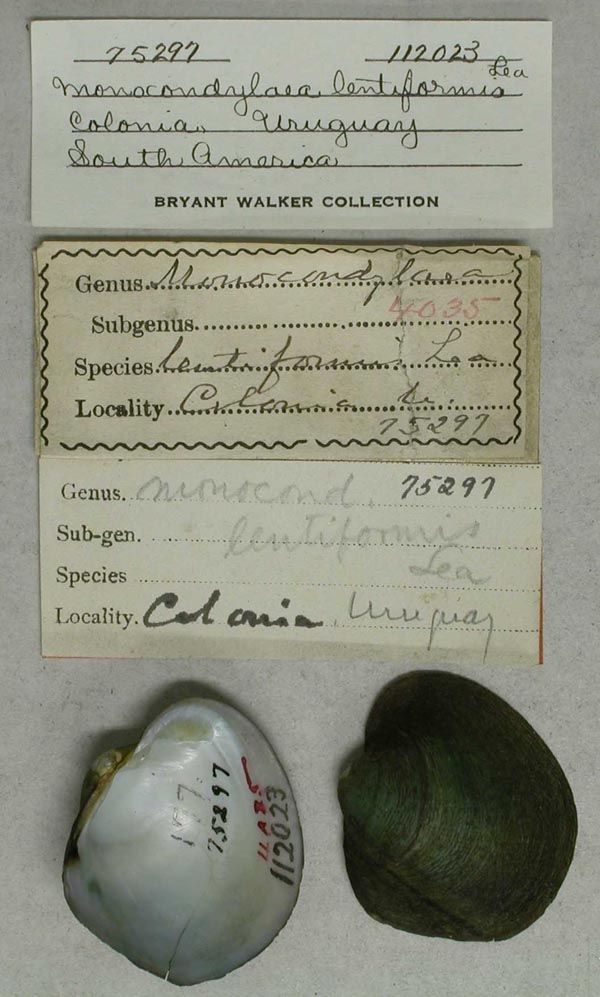 75297 112023
Monocondylaea lentiformis Lea
Colonia, Uruguay
South America
BRYANT WALKER COLLECTION
Genus Monocondylaea
4035
Subgenus
Species lentiformis Lea
Locality Colonia
75297
Genus. monocond. 75297
Sub-gen. lentiformis
Species Lea
Locality. Colonia, Uruguay
75297
112023